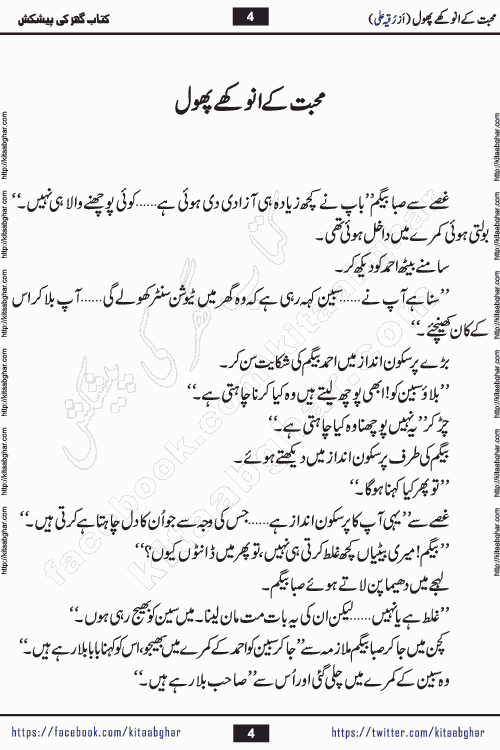 محبت کے انوکھے پھول (از رُقیہ علی)
4
کتاب گھر کی پیشکش
محبت کے انوکھے پھول
غصے سے صبا بیگم ’’باپ نے کچھ زیادہ ہی آزادی دی ہوئی ہے......کوئی پوچھنے والا ہی نہیں۔‘‘
بولتی ہوئی کمرے میں داخل ہوئی تھی۔
سامنے بیٹھ احمد کو دیکھ کر۔
’’سنا ہے آپ نے......سبین کہہ رہی ہے کہ وہ گھر میں ٹیوشن سنٹر کھولے گی......آپ بلا کر اس
کے کان کھینچئے۔‘‘
بڑے پرسکون انداز میں احمد بیگم کی شکایت سن کر۔
’’بلاؤ سبین کو! ابھی پوچھ لیتے ہیں وہ کیا کرنا چاہتی ہے۔‘‘
چڑ کر ’’یہ نہیں پوچھنا وہ کیا چاہتی ہے۔‘‘
بیگم کی طرف پرسکون انداز میں دیکھتے ہوئے۔
’’تو پھر کیا کہنا ہوگا۔‘‘
غصے سے ’’یہی آپ کا پرسکون انداز ہے......جس کی وجہ سے جو اُن کا دل چاہتا ہے کرتی ہیں۔‘‘
’’بیگم! میری بیٹیاں کچھ غلط کرتی ہی نہیں، تو پھر میں ڈانٹوں کیوں؟‘‘
لہجے میں دھیما پن لاتے ہوئے صبا بیگم۔
’’غلط ہے یا نہیں......لیکن ان کی یہ بات مت مان لینا۔ میں سبین کو بھیج رہی ہوں۔‘‘
کچن میں جا کر صبا بیگم ملازمہ سے ’’جا کر سبین کو احمد کے کمرے میں بھیجو، اس کو کہنا بابا بلا رہے ہیں۔‘‘
وہ سبین کے کمرے میں چلی گئی اور اُس سے ’’صاحب بلا رہے ہیں۔‘‘
کتاب گھر کی پیشکش
facebook.com/kitaabghar
kitaabghar.com
http://kitaabghar.com http://kitaabghar.com http://kitaabghar.com http://kitaabghar.com http://kitaabghar.com http://kitaabghar.com
http://kitaabghar.com http://kitaabghar.com http://kitaabghar.com http://kitaabghar.com http://kitaabghar.com http://kitaabghar.com
https://facebook.com/kitaabghar
4
https://twitter.com/kitaabghar